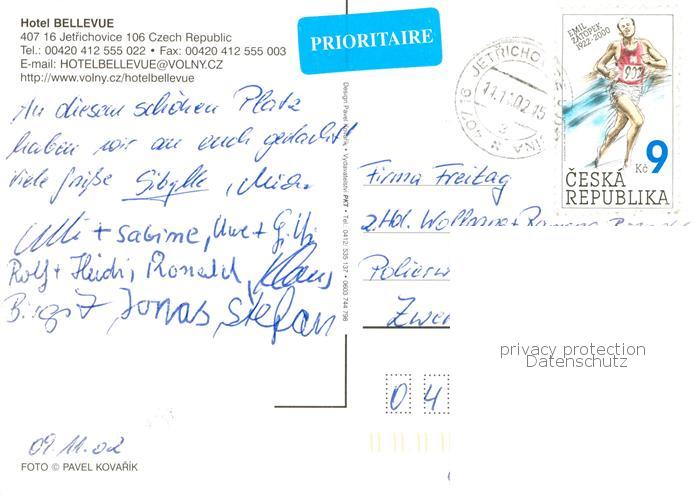 Hotel BELLEVUE
407 16 Jetřichovice 106 Czech Republic
Tel.: 00420 412 555 022 • Fax: 00420 412 555 003
E-mail: HOTELBELLEVUE@VOLNY.CZ
http://www.volny.cz/hotelbellevue
PRIORITAIRE
407 16 JETŘICHO
11.11.02-15
EMIL
ZÁTOPEK
1922-2000
903
Kč 9
ČESKÁ
REPUBLIKA
An diesem schönen Platz
haben wir an euch gedacht!
Viele Grüße Sibylle, Micha
Ulli + Sabine, Uwe + Gitti
Rolf + Heidi, Ronald, Klaus
Birgit, Jonas, Stefan
09.11.02
FOTO © PAVEL KOVAŘÍK
Design Pavel Kovařík • Vydavatelství PKT • Tel.: 0412/ 535 137 • 0603 744 796
Firma Freitag
z.Hd. Wolfgang + Ramona
Polierw
Zwen
0 4
privacy protection
Datenschutz